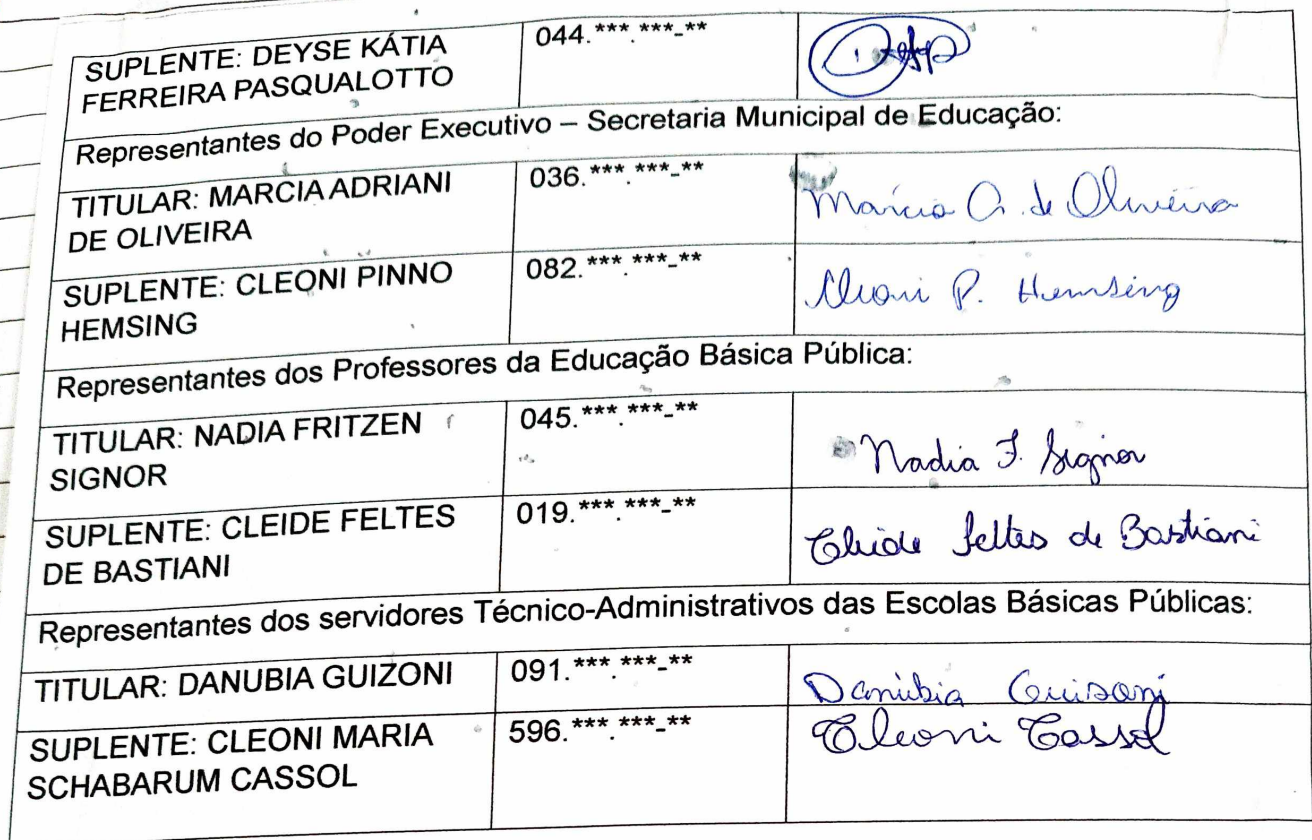 SUPLENTE: DEYSE KÁTIA
FERREIRA PASQUALOTTO
044.***.***-**
Representantes do Poder Executivo – Secretaria Municipal de Educação:
TITULAR: MARCIA ADRIANI
DE OLIVEIRA
036.***.***-**
Marcia A. de Oliveira
SUPLENTE: CLEONI PINNO
HEMSING
082.***.***-**
Cleoni P. Hemsing
Representantes dos Professores da Educação Básica Pública:
TITULAR: NADIA FRITZEN
SIGNOR
045.***.***-**
Nadia F. Signor
SUPLENTE: CLEIDE FELTES
DE BASTIANI
019.***.***-**
Cleide Feltes de Bastiani
Representantes dos servidores Técnico-Administrativos das Escolas Básicas Públicas:
TITULAR: DANUBIA GUIZONI
091.***.***-**
Danúbia Guisoni
SUPLENTE: CLEONI MARIA
SCHABARUM CASSOL
596.***.***-**
Cleoni Cassol